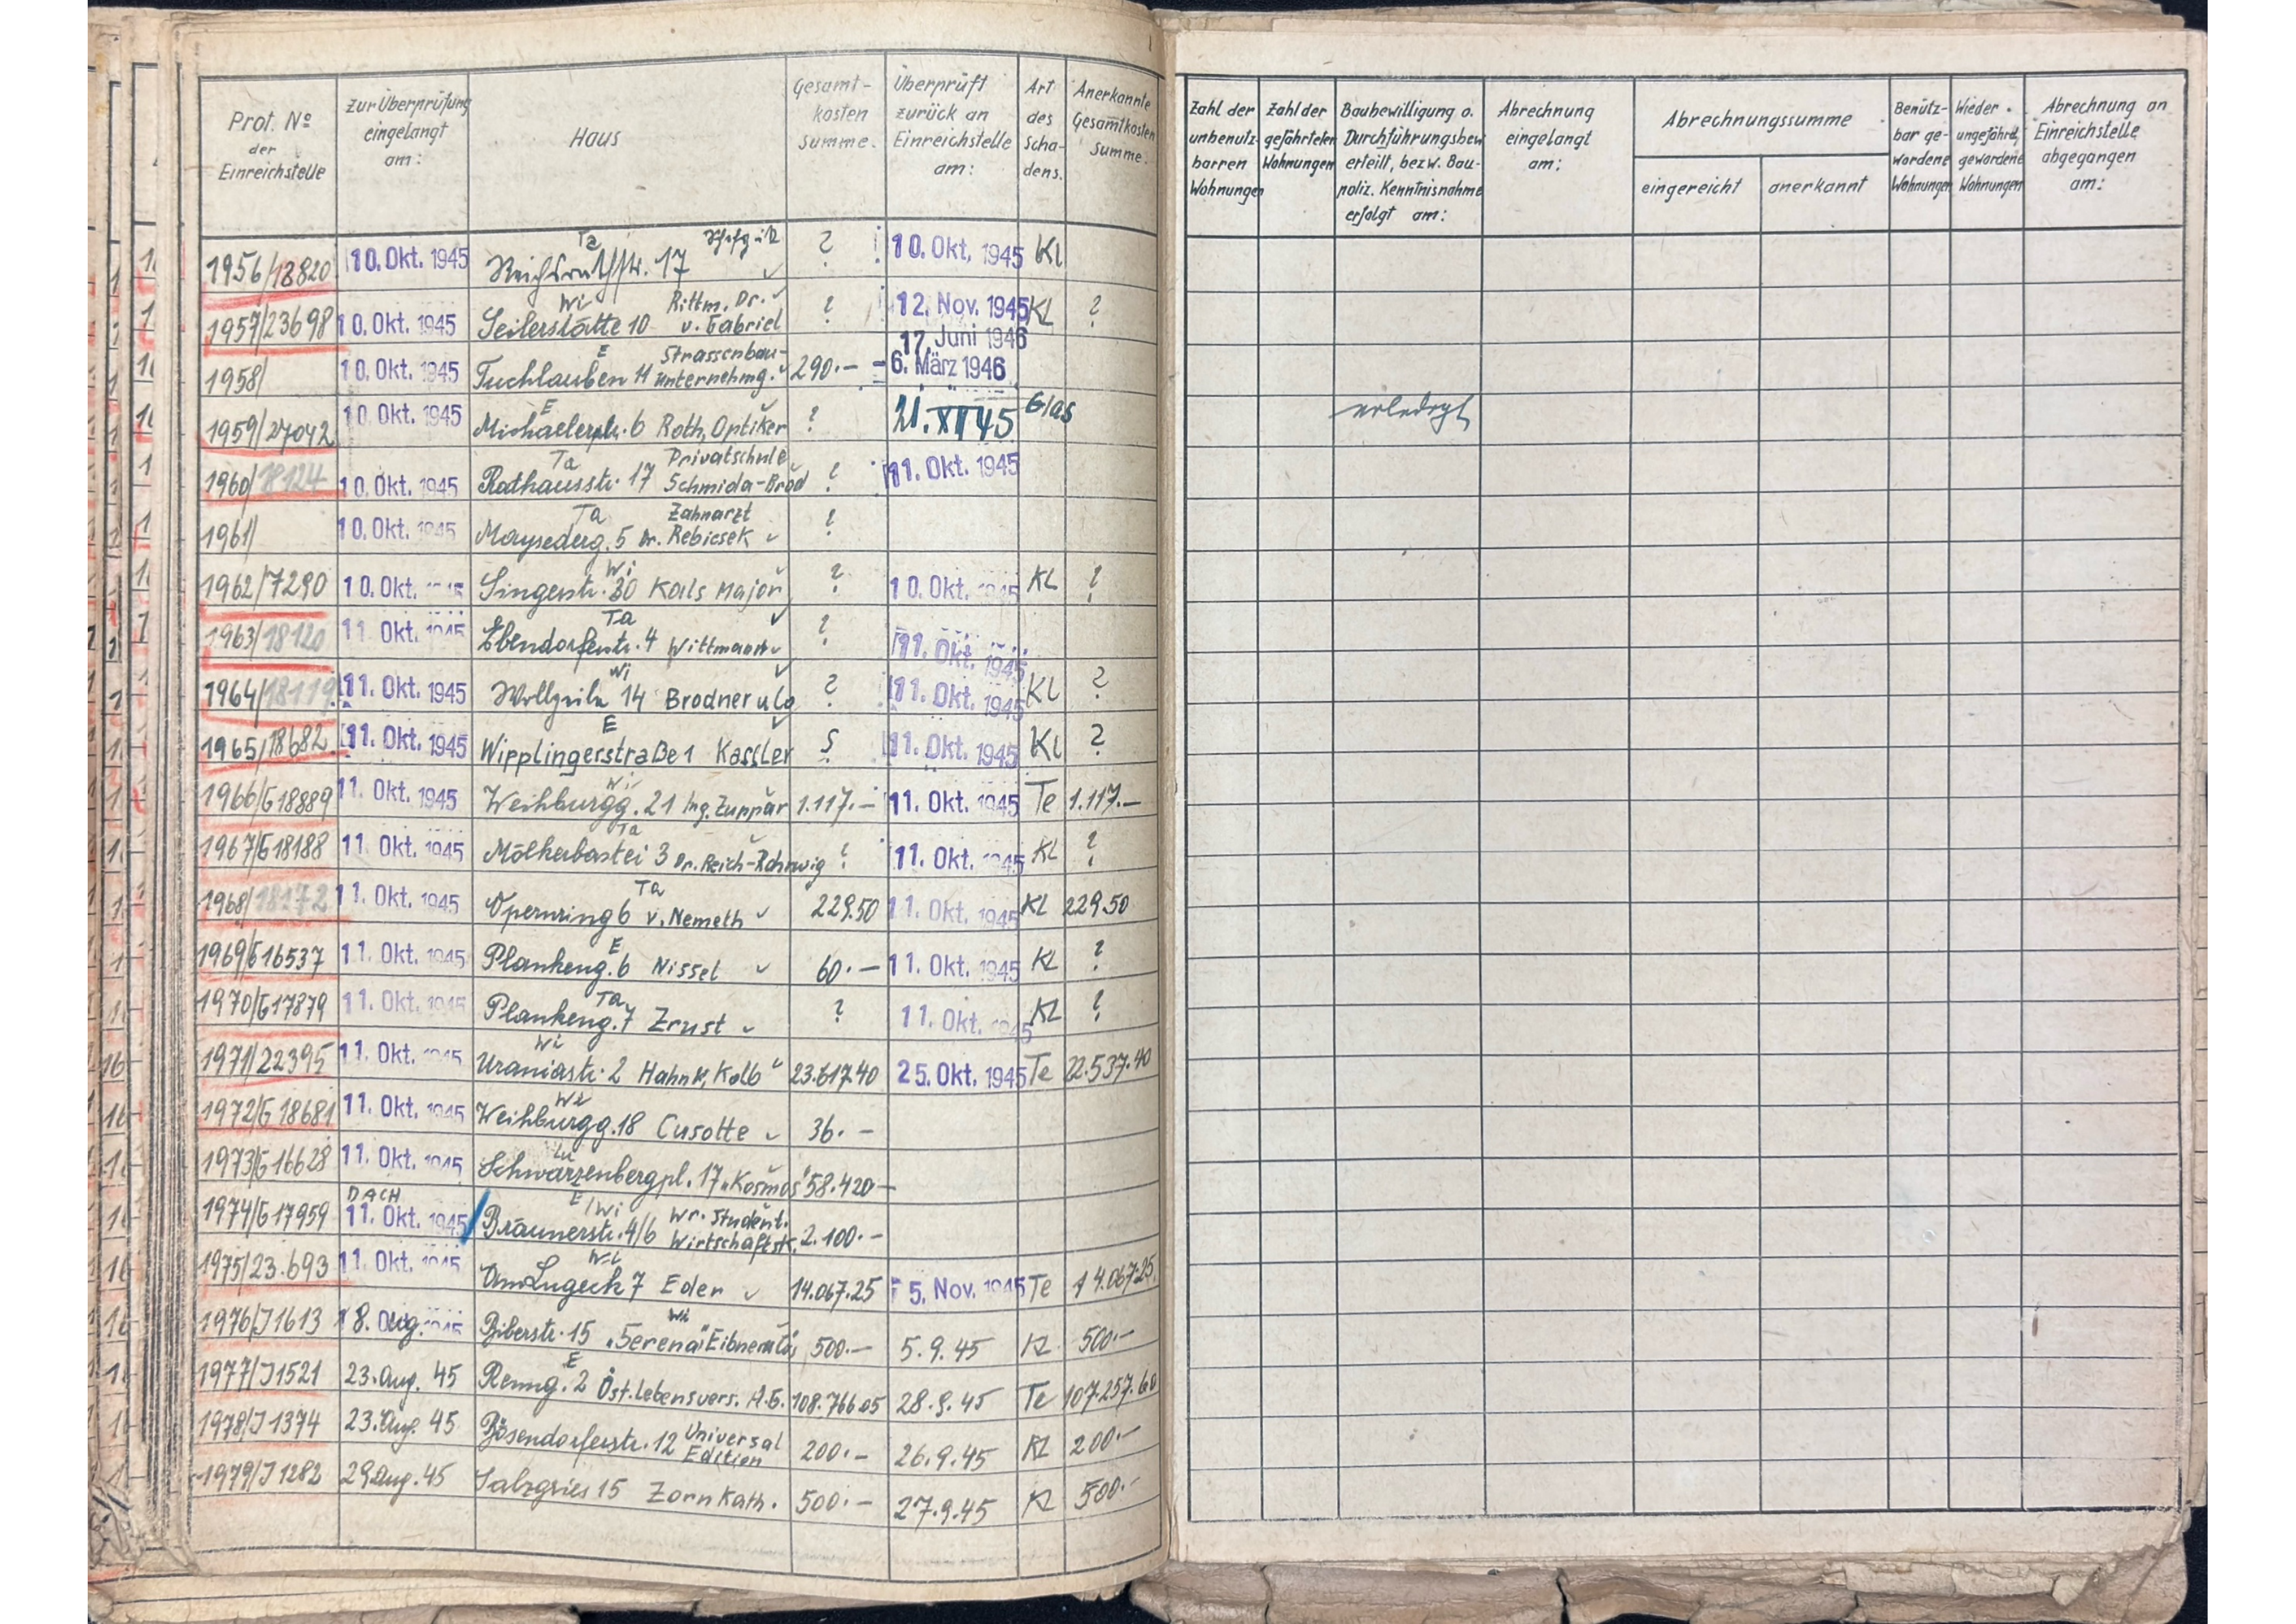 Prot. No der Einreichstelle | Zur Überprüfung eingelangt am: | Haus | Gesamt-kosten Summe. | Überprüft zurück an Einreichstelle am: | Art des Scha-dens. | Anerkannte Gesamtkosten Summe. | Zahl der unbenutz-barren Wohnungen | Zahl der gefährteten Wohnungen | Baubewilligung o. Durchführungsbew erteilt, bezw. Bau-poliz. Kenntnisnahme erfolgt am: | Abrechnung eingelangt am: | Abrechnungssumme eingereicht | anerkannt | Benütz-bar ge-wordene Wohnungen | Wieder ungefährd. gewordene Wohnungen | Abrechnung an Einreichstelle abgegangen am:
1956/18820 | 10. Okt. 1945 | Ta Reichsratsstr. 17 | ? | 10. Okt. 1945 | Kl
1957/23698 | 10. Okt. 1945 | Wi Seilerstätte 10 Rittm. Dr. v. Gabriel | ? | 12. Nov. 1945 | KL | ?
1958/ | 10. Okt. 1945 | E Tuchlauben 11 Strassenbau-unternehmg. | 290.— | 17. Juni 1946 6. März 1946
1959/27042 | 10. Okt. 1945 | E Michaelerpl. 6 Roth, Optiker | ? | 21. XII 45 | Glas | erledigt
1960/18124 | 10. Okt. 1945 | Ta Rathausstr. 17 Privatschule Schmida-Brod | ? | 11. Okt. 1945
1961/ | 10. Okt. 1945 | Ta Mayserderg. 5 Zahnarzt Dr. Rebicsek | ?
1962/7290 | 10. Okt. 1945 | Wi Singerstr. 30 Kails Major | ? | 10. Okt. 1945 | KL | ?
1963/18120 | 11. Okt. 1945 | Ta Ebendorferstr. 4 Wittmann | ? | 11. Okt. 1945
1964/18119 | 11. Okt. 1945 | Wi Wollzeile 14 Brodner u Co | ? | 11. Okt. 1945 | KL | ?
1965/18682 | 11. Okt. 1945 | E Wipplingerstraße 1 Kassler | ? | 11. Okt. 1945 | Kl | ?
1966/G18889 | 11. Okt. 1945 | Wi Weihburgg. 21 Ing. Zuppar | 1.117.— | 11. Okt. 1945 | Te | 1.117.—
1967/G18188 | 11. Okt. 1945 | Ta Mölkerbastei 3 Dr. Reich-Rohrwig | ? | 11. Okt. 1945 | KL | ?
1968/18172 | 11. Okt. 1945 | Ta Opernring 6 v. Nemeth | 229.50 | 11. Okt. 1945 | KL | 229.50
1969/G16537 | 11. Okt. 1945 | E Plankeng. 6 Nissel | 60.— | 11. Okt. 1945 | KL | ?
1970/G17879 | 11. Okt. 1945 | Ta Plankeng. 7 Zrust | ? | 11. Okt. 1945 | KL | ?
1971/22395 | 11. Okt. 1945 | Wi Uraniastr. 2 Hahn u. Kolb | 23.617.40 | 25. Okt. 1945 | Te | 22.537.40
1972/G18681 | 11. Okt. 1945 | Wi Weihburgg. 18 Cusotte | 36.—
1973/G16628 | 11. Okt. 1945 | Lu Schwarzenbergpl. 17 „Kosmos" | 58.420—
1974/G17959 | DACH 11. Okt. 1945 | E/Wi Bräunerstr. 4/6 Wr. Student. Wirtschaftsk. | 2.100.—
1975/23.693 | 11. Okt. 1945 | Wi Am Lugeck 7 Eder | 14.067.25 | 5. Nov. 1945 | Te | 14.067.25
1976/J1613 | 18. Aug. 1945 | Wi Biberstr. 15 „Serena" Eibner | 500.— | 5.9.45 | KL | 500.—
1977/J1521 | 23. Aug. 45 | E Renng. 2 Öst. Lebensvers. A.G. | 108.766.05 | 28.9.45 | Te | 107.257.60
1978/J1374 | 23. Aug. 45 | Bösendorferstr. 12 Universal Edition | 200.— | 26.9.45 | KL | 200.—
1979/J1282 | 29 Aug. 45 | Salzgries 15 Zorn Kath. | 500.— | 27.9.45 | KL | 500.—